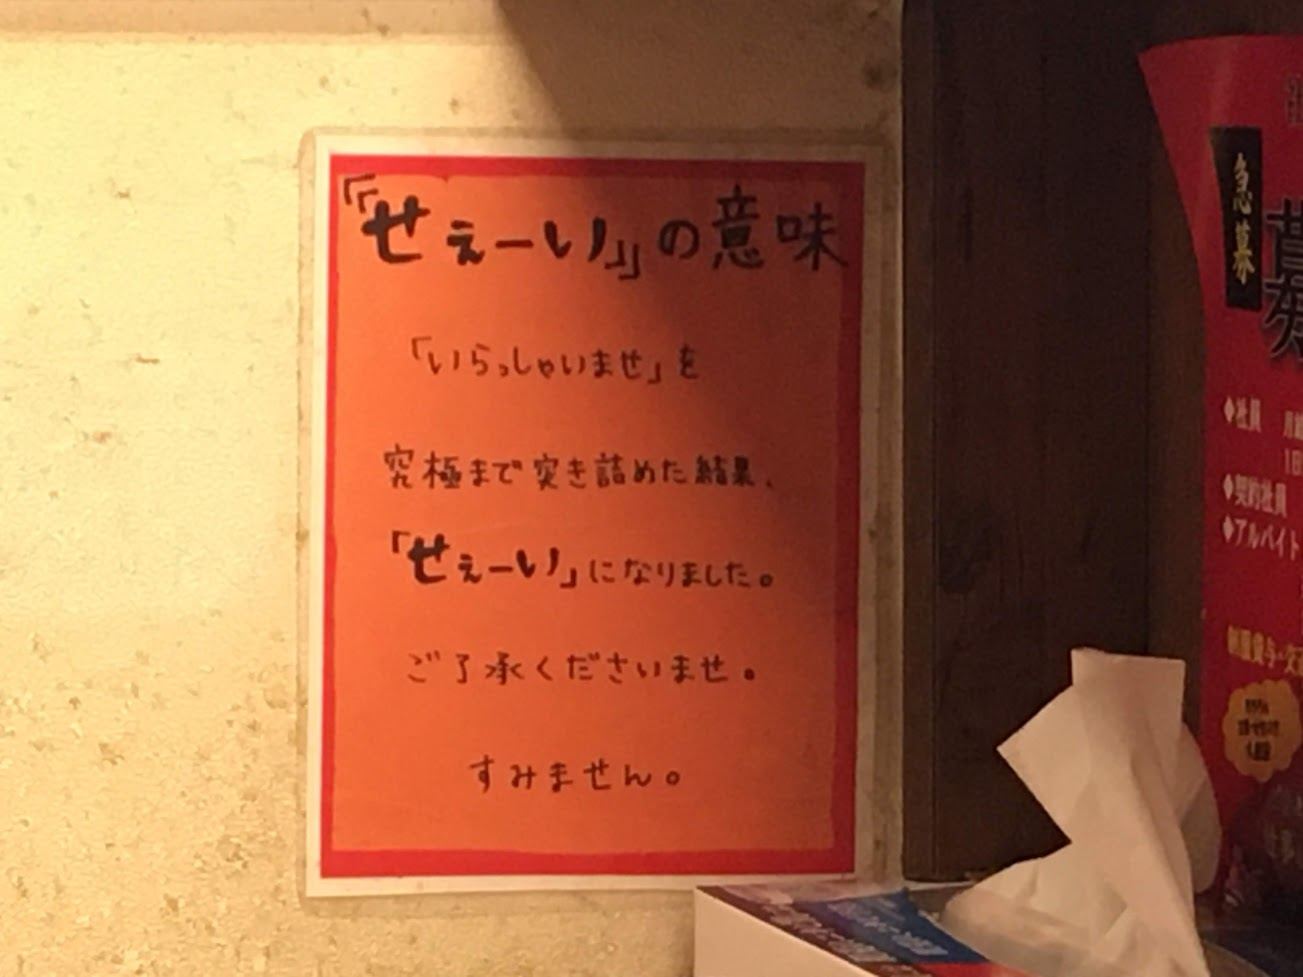 「「せぇーい」」の意味
「いらっしゃいませ」を
究極まで突き詰めた結果、
「せぇーい」になりました。
ご了承くださいませ。
すみません。
急募
募
◆社員 月給
1日
◆契約社員
◆アルバイト
制服貸与・交